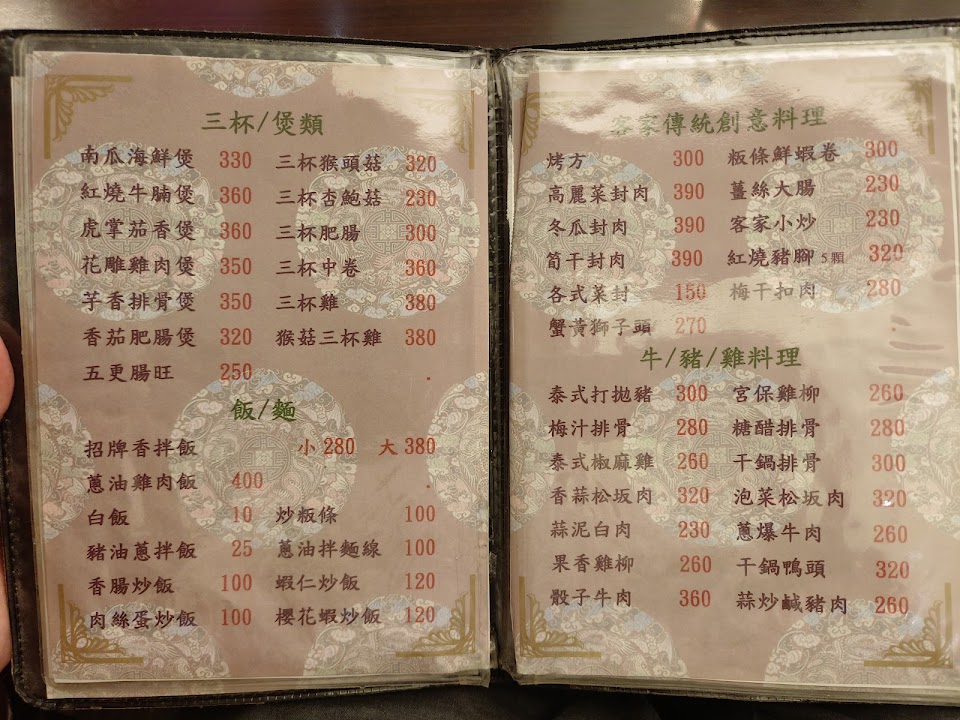 三杯/煲類
南瓜海鮮煲 330 三杯猴頭菇 320
紅燒牛腩煲 360 三杯杏鮑菇 230
虎掌茄香煲 360 三杯肥腸 300
花雕雞肉煲 350 三杯中卷 360
芋香排骨煲 350 三杯雞 380
香茄肥腸煲 320 猴菇三杯雞 380
五更腸旺 250
飯/麵
招牌香拌飯 小 280 大 380
蔥油雞肉飯 400
白飯 10 炒粄條 100
豬油蔥拌飯 25 蔥油拌麵線 100
香腸炒飯 100 蝦仁炒飯 120
肉絲蛋炒飯 100 櫻花蝦炒飯 120
客家傳統創意料理
烤方 300 粄條鮮蝦卷 300
高麗菜封肉 390 薑絲大腸 230
冬瓜封肉 390 客家小炒 230
筍干封肉 390 紅燒豬腳 5顆 320
各式菜封 150 梅干扣肉 280
蟹黃獅子頭 270
牛/豬/雞料理
泰式打拋豬 300 宮保雞柳 260
梅汁排骨 280 糖醋排骨 280
泰式椒麻雞 260 干鍋排骨 300
香蒜松坂肉 320 泡菜松坂肉 320
蒜泥白肉 230 蔥爆牛肉 260
果香雞柳 260 干鍋鴨頭 320
骰子牛肉 360 蒜炒鹹豬肉 260